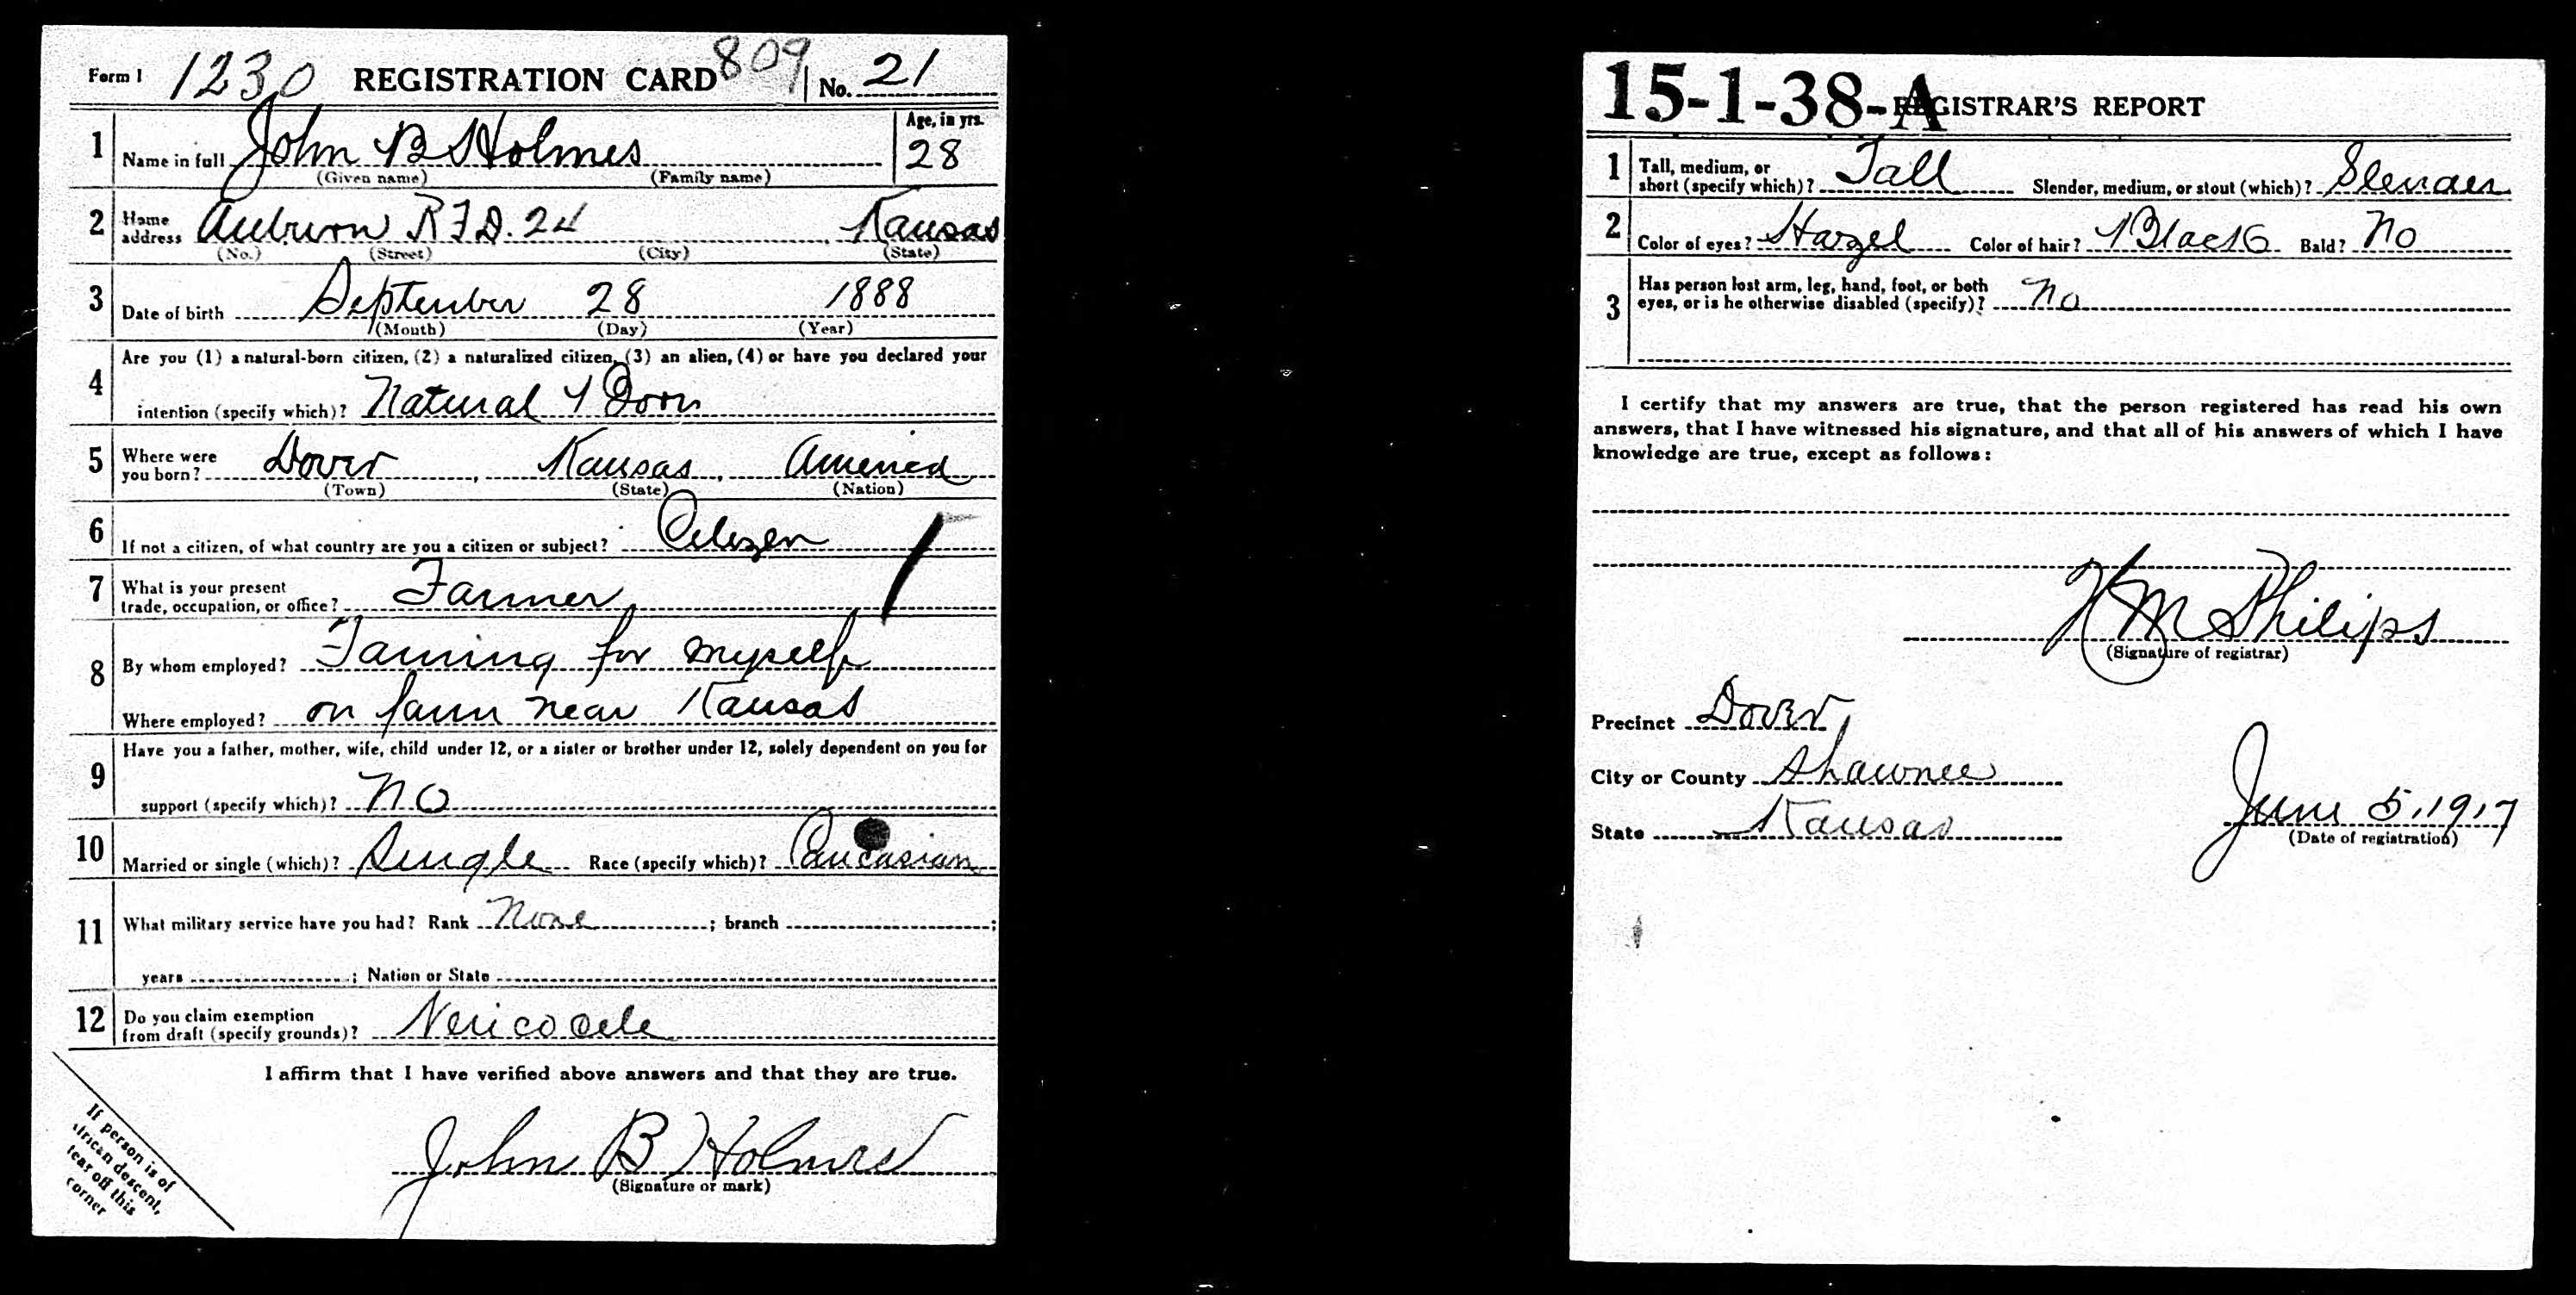 Form 1 1230 REGISTRATION CARD 809 No. 21
1 Name in full John B Holmes Age, in yrs. 28
(Given name) (Family name)
2 Home address Auburn R.F.D. 24 Kansas
(No.) (Street) (City) (State)
3 Date of birth September 28 1888
(Month) (Day) (Year)
4 Are you (1) a natural-born citizen, (2) a naturalized citizen, (3) an alien, (4) or have you declared your
intention (specify which)? Natural Born
5 Where were you born? Dover, Kansas, America
(Town) (State) (Nation)
6 If not a citizen, of what country are you a citizen or subject? Citizen
7 What is your present trade, occupation, or office? Farmer
8 By whom employed? Farming for myself
Where employed? on farm near Kansas
9 Have you a father, mother, wife, child under 12, or a sister or brother under 12, solely dependent on you for
support (specify which)? No
10 Married or single (which)? Single Race (specify which)? Caucasian
11 What military service have you had? Rank None ; branch ;
years ; Nation or State
12 Do you claim exemption from draft (specify grounds)? Vericocele
I affirm that I have verified above answers and that they are true.
John B Holmes
(Signature or mark)
If person is of
African descent,
tear off this
corner
15-1-38-A REGISTRAR'S REPORT
1 Tall, medium, or short (specify which)? Tall Slender, medium, or stout (which)? Slender
2 Color of eyes? Hazel Color of hair? Black Bald? No
3 Has person lost arm, leg, hand, foot, or both eyes, or is he otherwise disabled (specify)? No
I certify that my answers are true, that the person registered has read his own
answers, that I have witnessed his signature, and that all of his answers of which I have
knowledge are true, except as follows:
M Philips
(Signature of registrar)
Precinct Dover
City or County Shawnee
State Kansas
June 5, 1917
(Date of registration)